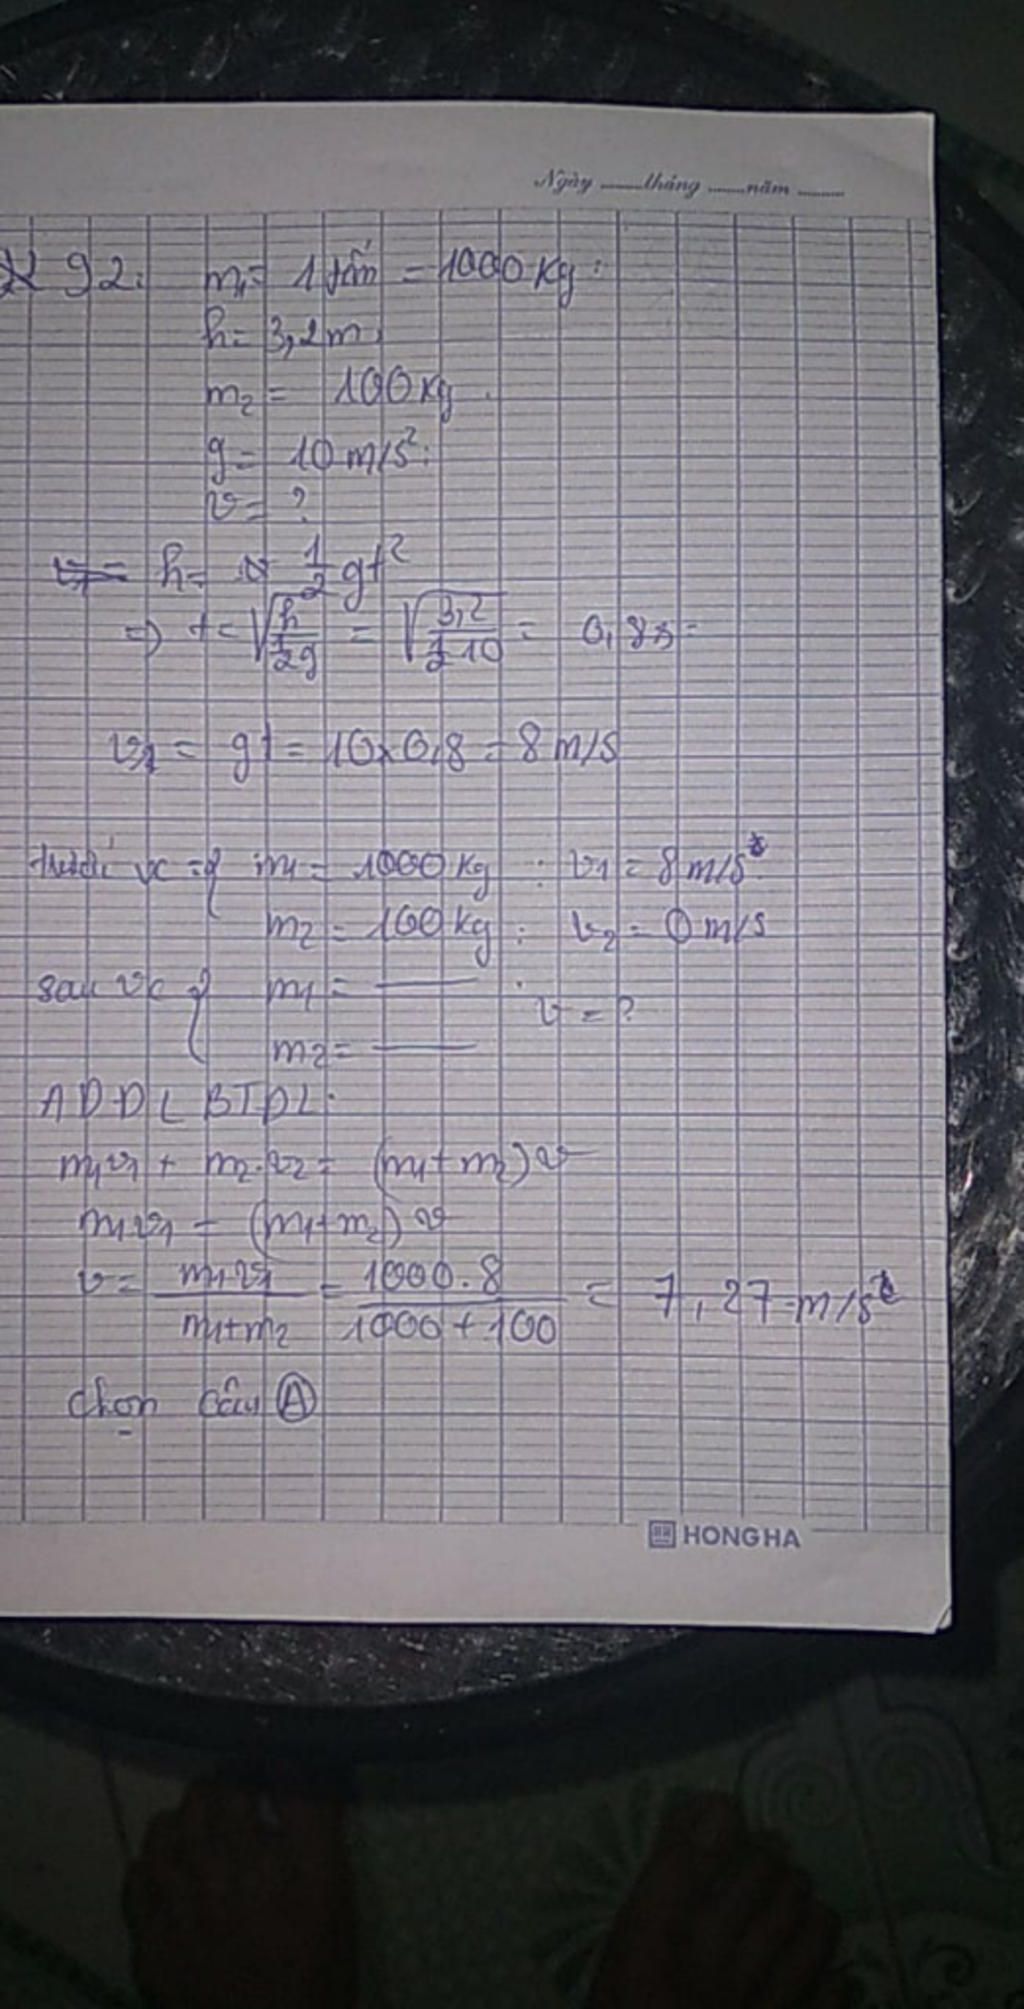 Ngày ........tháng ........năm .........
92: m₁ = 1 tấn = 1000 kg
h = 3,2m
m₂ = 100 kg
g = 10 m/s²
v = ?
h = 1/2 gt²
=> t = √(h/(1/2 g)) = √(3,2/(1/2 10)) = 0,8s
v₁ = gt = 10 x 0,8 = 8 m/s
trước vc { m₁ = 1000 kg : v₁ = 8 m/s
m₂ = 100 kg : v₂ = 0 m/s
sau vc { m₁ = —— v = ?
m₂ = ——
ADDLBTDL:
m₁v₁ + m₂.v₂ = (m₁+m₂)v
m₁v₁ = (m₁+m₂)v
v = m₁.v₁/(m₁+m₂) = 1000.8/(1000+100) = 7,27 m/s
chọn câu A
HONG HA